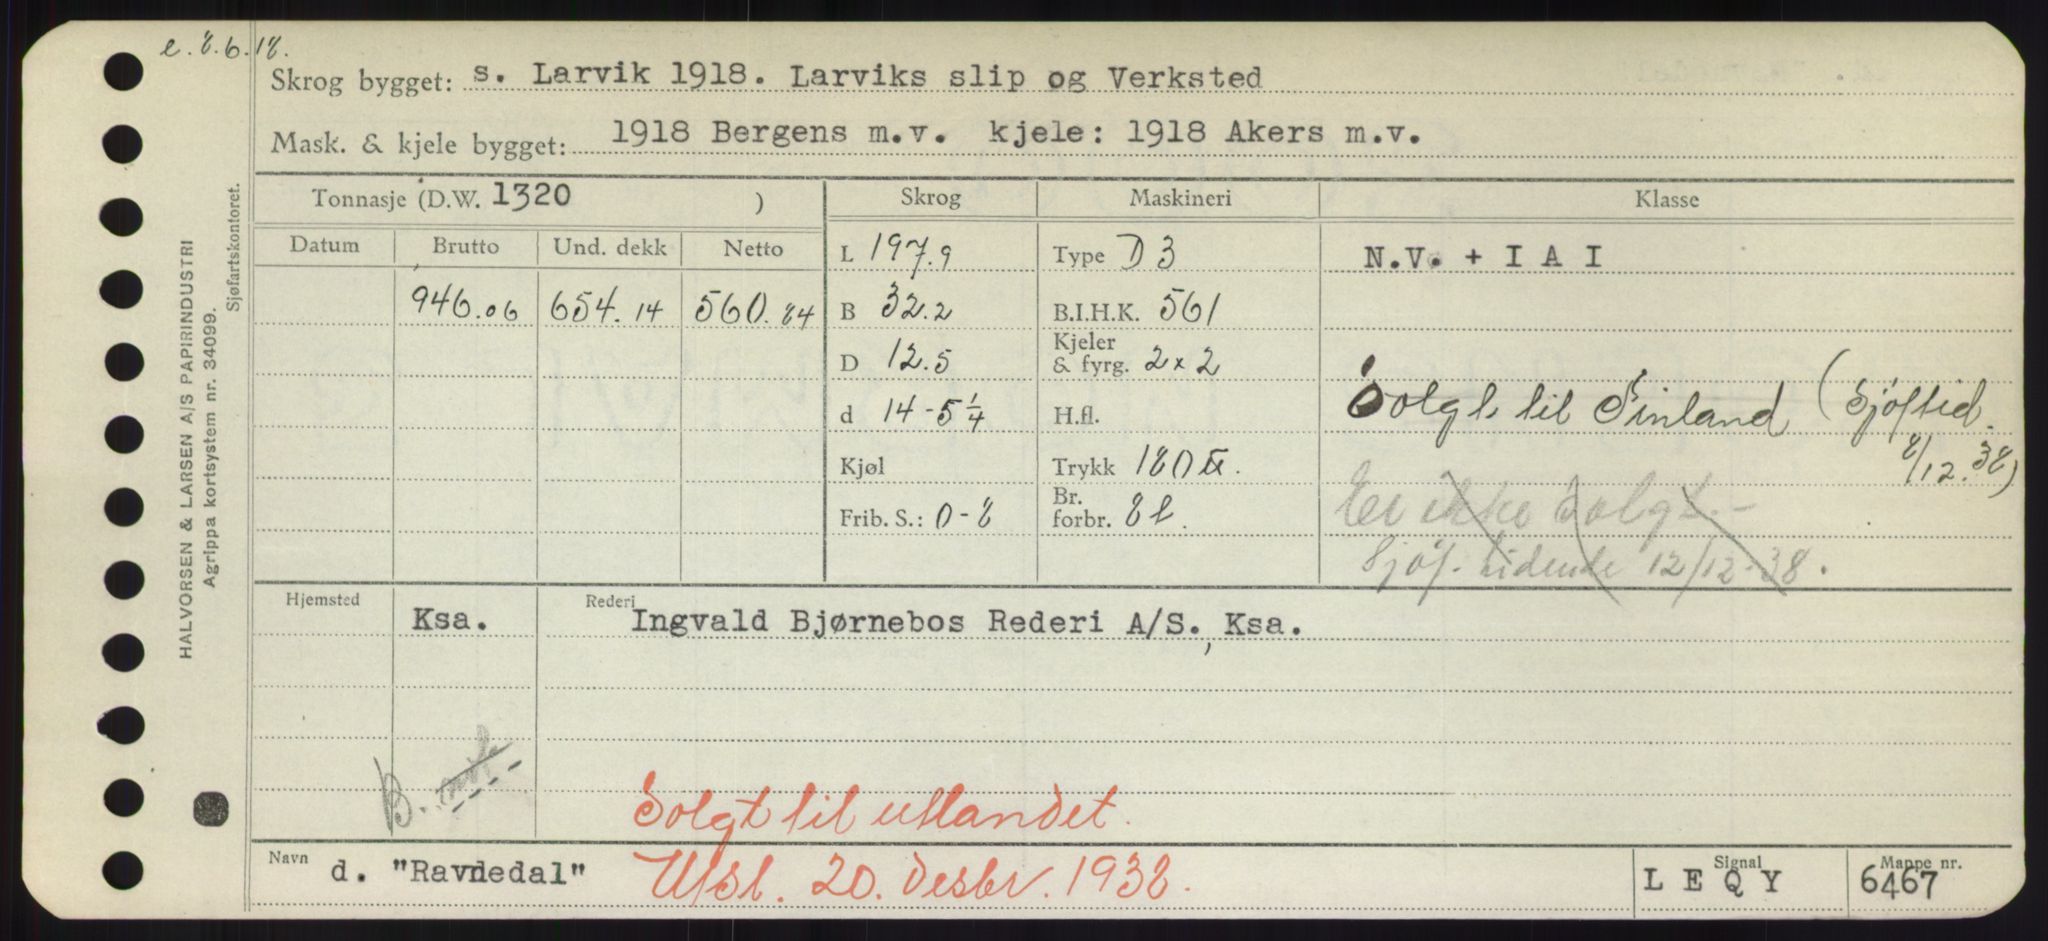 e. 8.6.18.
Skrog bygget: s. Larvik 1918. Larviks slip og Verksted
Mask. & kjele bygget: 1918 Bergens m.v. kjele: 1918 Akers m.v.
Tonnasje (D.W. 1320 ) Skrog Maskineri Klasse
Datum Brutto Und. dekk Netto L 197.9 Type D 3 N.V. + I A I
946.06 654.14 560.84 B 32.2 B.I.H.K. 561
D 12.5 Kjeler & fyrg. 2 x 2
d 14-5 1/4 H.fl. Solgt til Finland (Sjøftid. 8/12.38)
Kjøl Trykk 180 ℔.
Frib. S.: 0-8 Br. forbr. 8 t. Er ikke solgt.-
Sjøf. tidende 12/12-38.
Hjemsted Ksa. Rederi Ingvald Bjørnebos Rederi A/S., Ksa.
B.
Solgt til utlandet.
Navn d. "Ravnedal" Utsl. 20. desbr. 1938. Signal L E Q Y Mappe nr. 6467
HALVORSEN & LARSEN A/S PAPIRINDUSTRI
Agrippa kortsystem nr. 34099.
Sjøfartskontoret.